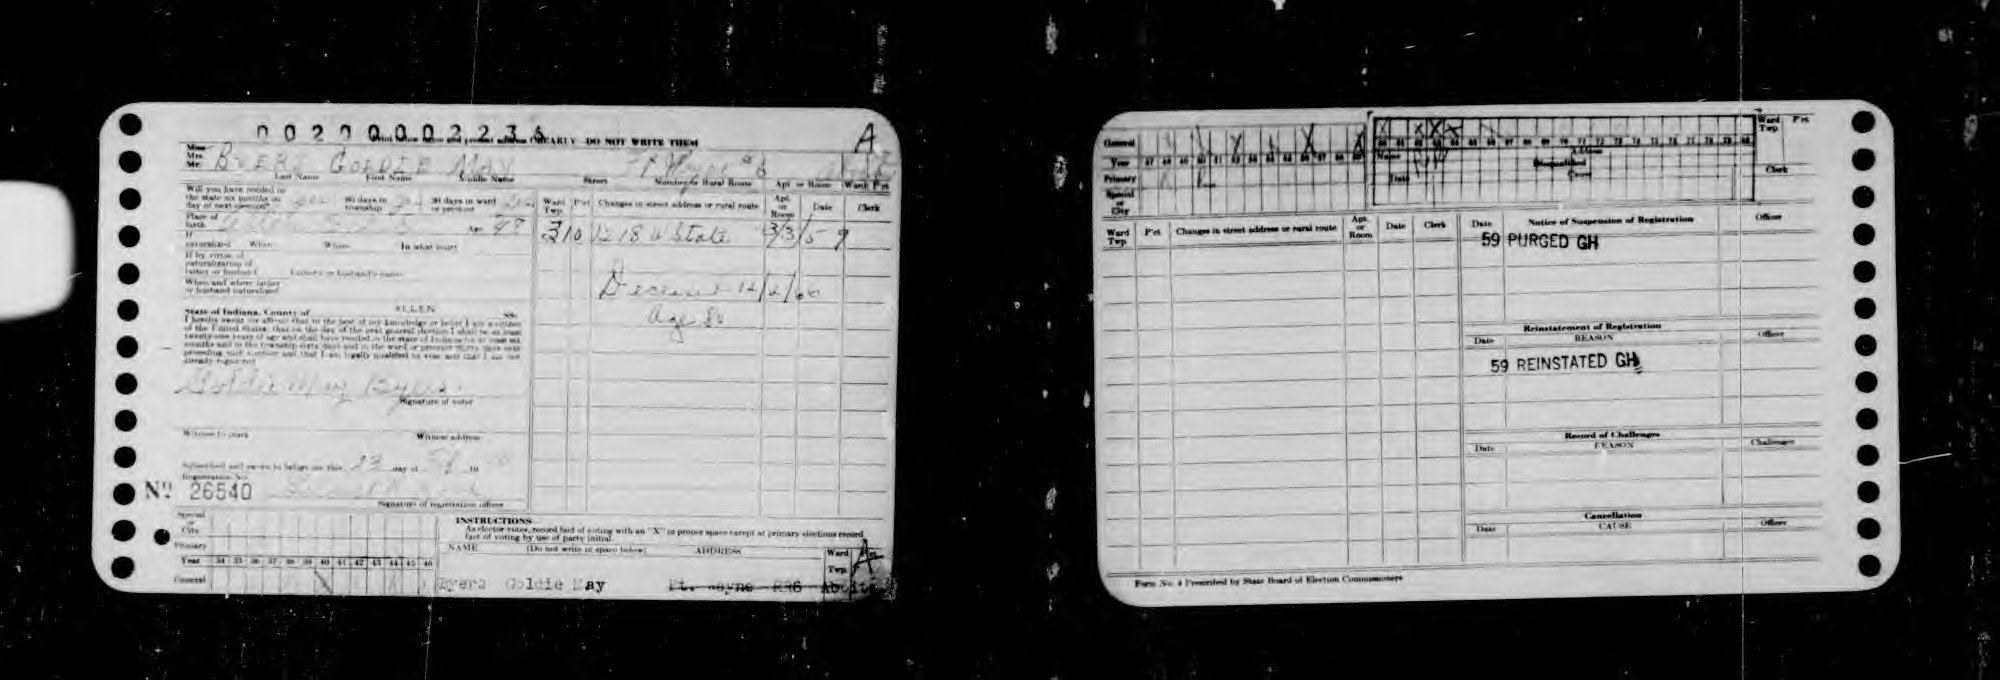 0020000223
CLEARLY DO NOT WRITE THEM
A
Miss
Mrs.
Mr.
BYERS GOLDIE MAY
Last Name First Name Middle Name Street Number or Rural Route Apt. or Room Ward Pct
Will you have resided in
the state six months on
day of next election? 60 days in
township 30 days in ward
or precinct
Place of
birth Age
If
naturalized When Where In what court
If by virtue of
naturalization of
father or husband Father's or husband's name
When and where father
or husband naturalized
State of Indiana, County of ALLEN SS:
I hereby swear or affirm that to the best of my knowledge or belief I am a citizen
of the United States; that on the day of the next general election I shall be at least
twenty-one years of age and shall have resided in the state of Indiana for at least six
months and in the township sixty days and in the ward or precinct thirty days next
preceding such election and that I am legally qualified to vote and that I am not
already registered.
Goldie May Byers
Signature of voter
Witness to mark Witness address
Subscribed and sworn to before me this 23 day of
Registration No.
No. 26540
Signature of registration officer
Ward
Twp. P'ct Changes in street address or rural route Apt.
or
Room Date Clerk
3 10 1218 W State 3/3/59
Deceased 12/2/
Age 80
Special
or
City
Primary
Year 34 35 36 37 38 39 40 41 42 43 44 45 46
General
INSTRUCTIONS
As elector votes, record fact of voting with an "X" in proper space except at primary elections record
fact of voting by use of party initial.
NAME (Do not write in space below) ADDRESS Ward
Twp. Pct.
Byers Goldie May Ft. Wayne RR6 Aboite
General
Year 47 48 49 50 51 52 53 54 55 56 57 58 59
Primary
Special
or
City
60 61 62 63 64 65 66 67 68 69 70 71 72 73 74 75 76 77 78 79 80
Name Address
Date
Ward
Twp. P'ct.
Clerk
Ward
Twp. P'ct. Changes in street address or rural route Apt.
or
Room Date Clerk
Date Notice of Suspension of Registration Officer
59 PURGED GH
Reinstatement of Registration
Date REASON Officer
59 REINSTATED GH
Record of Challenges
Date REASON Challenger
Cancellation
Date CAUSE Officer
Form No. 4 Prescribed by State Board of Election Commissioners